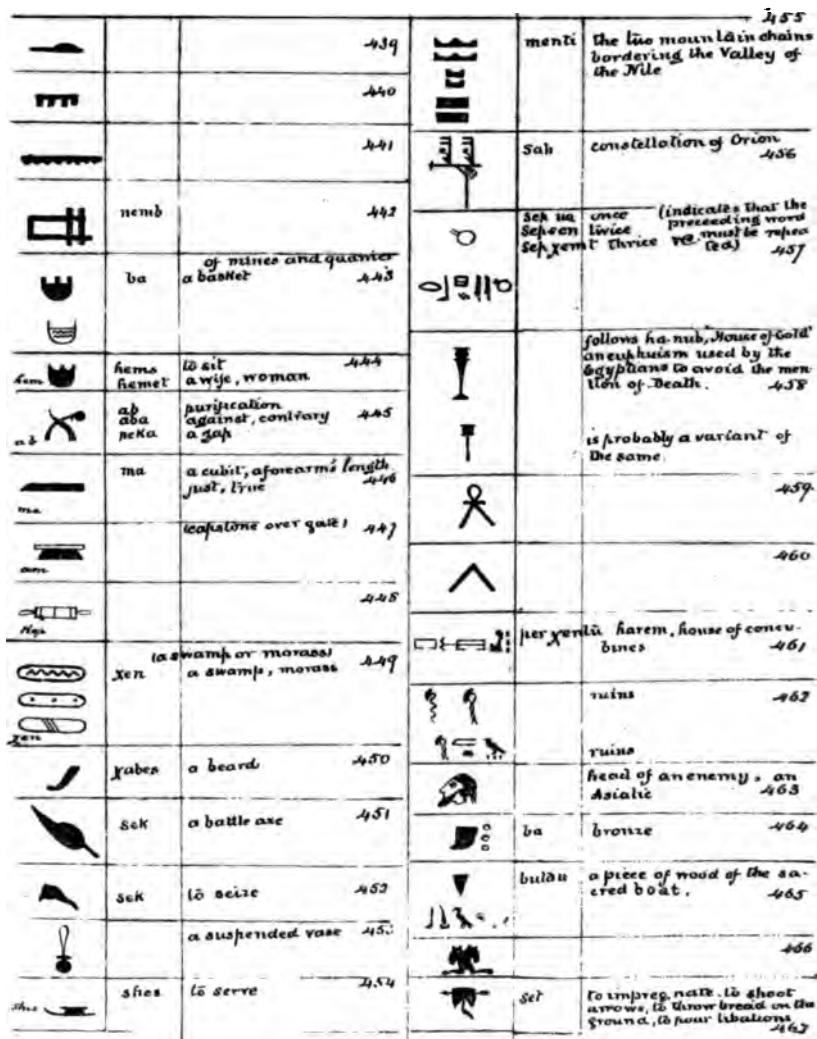 439
440
441
nemb
442
of mines and quarries
ba
a basket
443
hem
hems
hemet
to sit
a wife, woman
444
ab
ab
aba
peka
purification
against, contrary
a gap
445
ma
ma
a cubit, a forearm's length
just, true
446
am
(capstone over gate)
447
Hap
448
(a swamp or morass)
xen
a swamp, morass
449
xen
xabes
a beard
450
sek
a battle axe
451
sek
to seize
452
a suspended vase
shes
shes
to serve
454
455
menti
the two mountain chains
bordering the Valley of
the Nile
Sah
constellation of Orion
456
Sep ua once (indicates that the
Sepson twice preceeding word
Sep xemt thrice must be repea
ted)
457
follows ha-nub, "House of Gold"
an euphuism used by the
Egyptians to avoid the men
tion of Death.
458
is probably a variant of
the same.
459
460
per xentu harem, house of concu-
bines
461
ruins
462
ruins
head of an enemy, an
Asiatic
463
ba
bronze
464
buldu
a piece of wood of the sa-
cred boat.
465
466
set
to impregnate, to shoot
arrows, to throw bread on the
ground, to pour libations
467